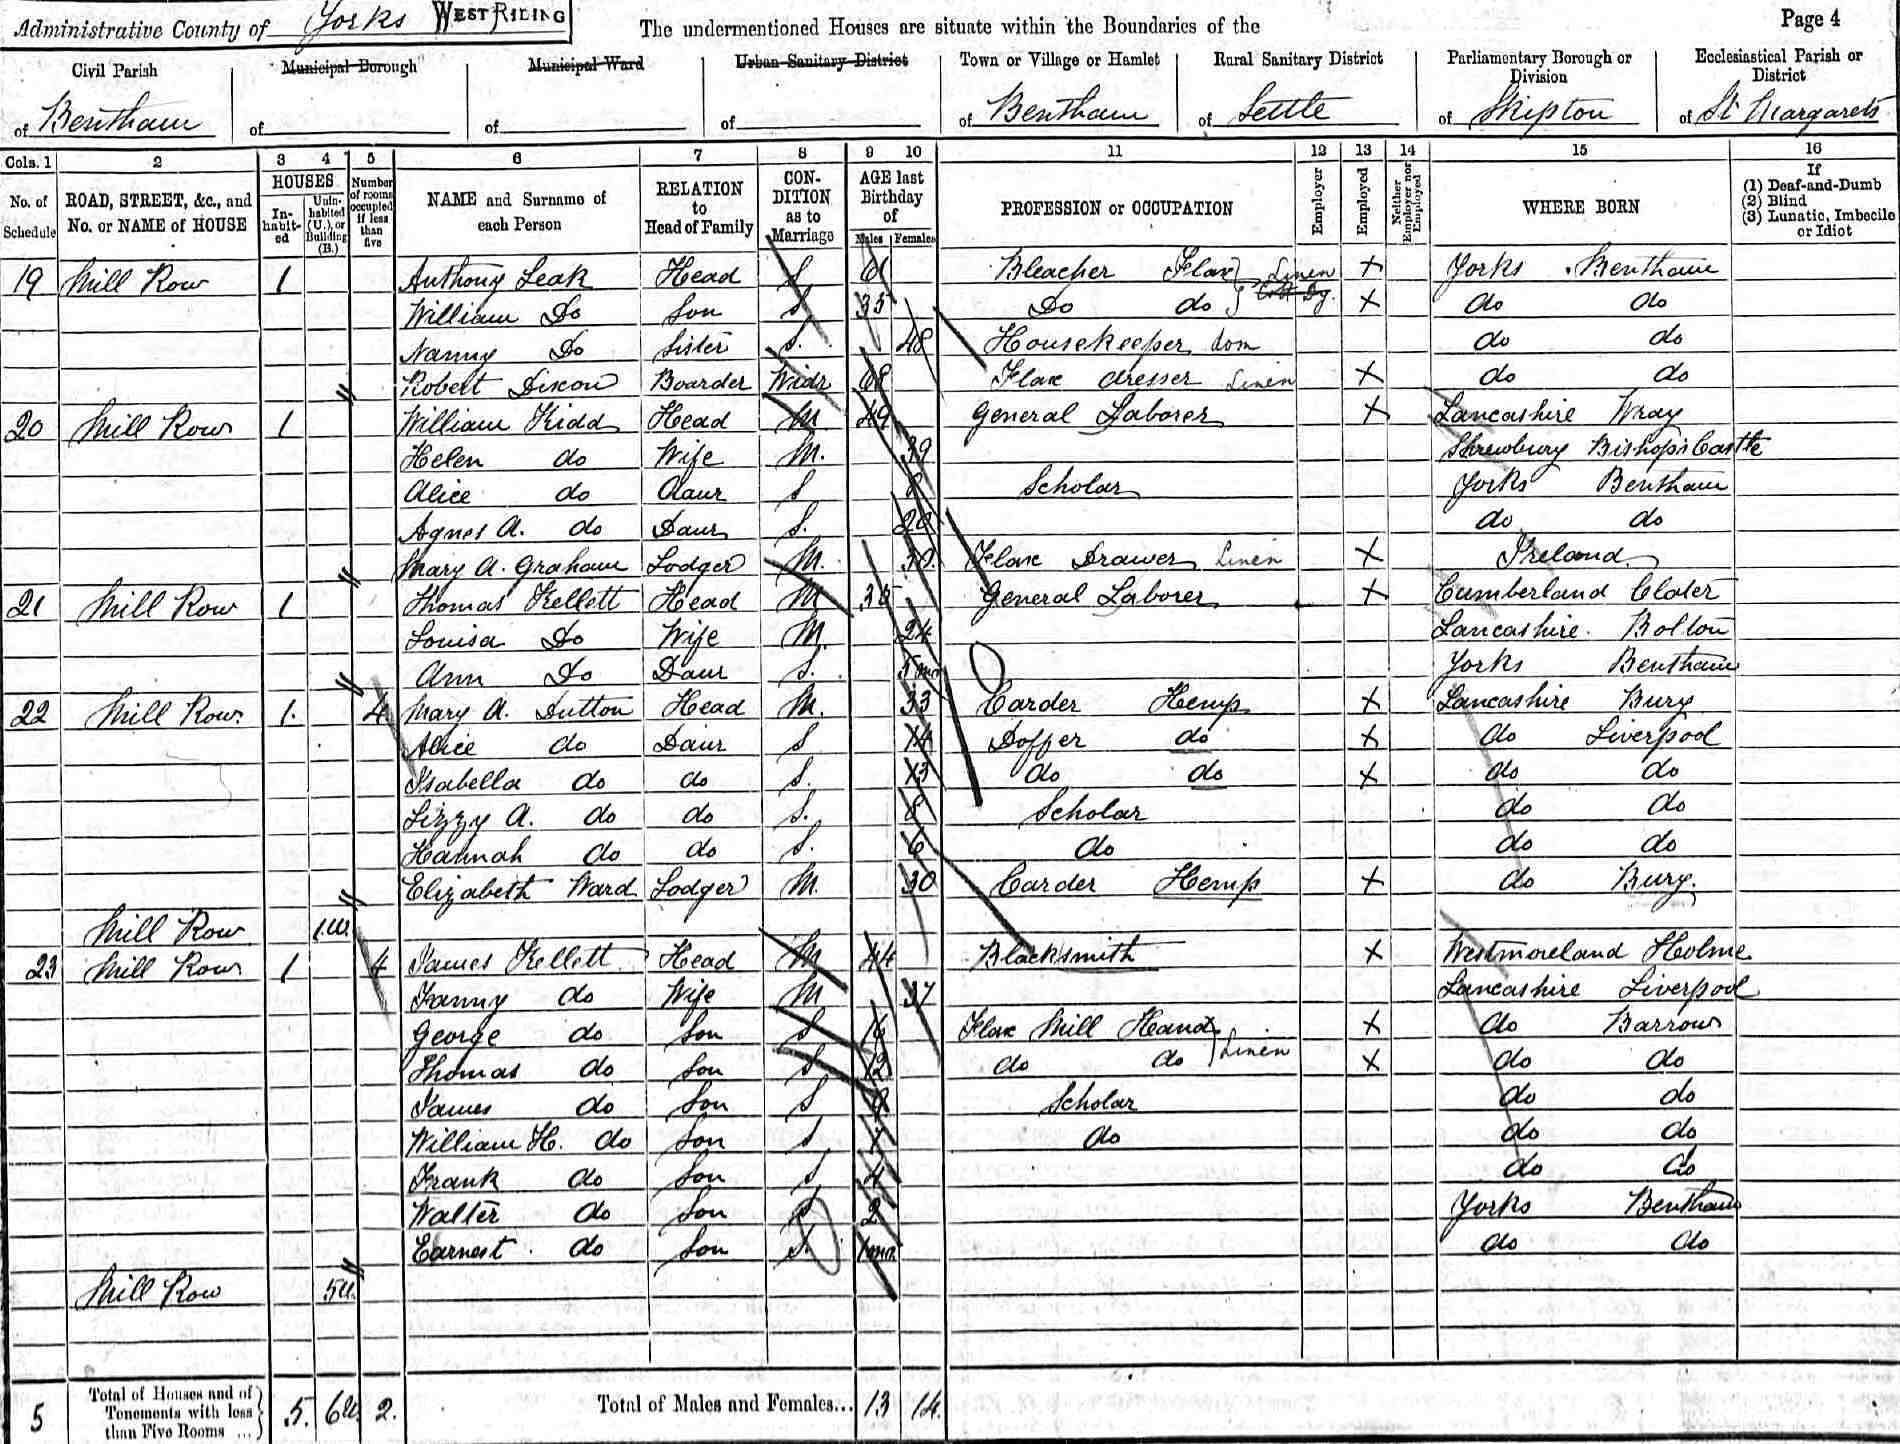 Administrative County of Yorks WEST RIDING The undermentioned Houses are situate within the Boundaries of the Page 4
Civil Parish Municipal Borough Municipal Ward Urban Sanitary District Town or Village or Hamlet Rural Sanitary District Parliamentary Borough or Division Ecclesiastical Parish or District
of Bentham of of of of Bentham of Settle of Skipton of St Margarets
Cols. 1 2 3 4 5 6 7 8 9 10 11 12 13 14 15 16
No. of Schedule ROAD, STREET, &c., and No. or NAME of HOUSE HOUSES In-habit-ed Unin-habited (U.), or Building (B.) Number of rooms occupied if less than five NAME and Surname of each Person RELATION to Head of Family CON-DITION as to Marriage AGE last Birthday of Males Females PROFESSION or OCCUPATION Employer Employed Neither Employer nor Employed WHERE BORN If (1) Deaf-and-Dumb (2) Blind (3) Lunatic, Imbecile or Idiot
19 Mill Row 1 Anthony Leak Head S 61 Bleacher Flax Linen X Yorks Bentham
William Do Son S 35 Do do X do do
Nanny Do Sister S. 48 Housekeeper dom do do
Robert Dixon Boarder Widr 68 Flax dresser Linen X do do
20 Mill Row 1 William Kidd Head M 49 General Laborer X Lancashire Wray
Helen do Wife M. 39 Shrewbury Bishops Castle
Alice do Daur S 8 Scholar Yorks Bentham
Agnes A. do Daur S. do do
Mary A. Graham Lodger M. Flax Drawer Linen X Ireland
21 Mill Row 1 Thomas Kellett Head M General Laborer X Cumberland Clater
Louisa Do Wife M. 24 Lancashire. Bolton
Ann Do Daur S. 5 mo Yorks Bentham
22 Mill Row. 1. 4 Mary A. Dutton Head M. 33 Carder Hemp X Lancashire Bury
Alice do Daur S 14 Doffer do X do Liverpool
Isabella do do S. 13 do do X do do
Lizzy A. do do S. 8 Scholar do do
Hannah do do S. 6 do do do
Elizabeth Ward Lodger M 30 Carder Hemp X do Bury.
Mill Row 1 U.
23 Mill Row 1 4 James Kellett Head M 44 Blacksmith X Westmoreland Holme
Fanny do Wife M 37 Lancashire Liverpool
George do Son S 16 Flax Mill Hand Linen X do Barrow
Thomas do Son S 12 do do X do do
James do Son S Scholar do do
William H. do Son S 7 do do do
Frank do Son S 4 do do
Walter do Son S 2 Yorks Bentham
Earnest do Son S. 1 mo do do
Mill Row 5 U.
5 Total of Houses and of Tenements with less than Five Rooms ... 5. 6 U. 2. Total of Males and Females... 13 14.